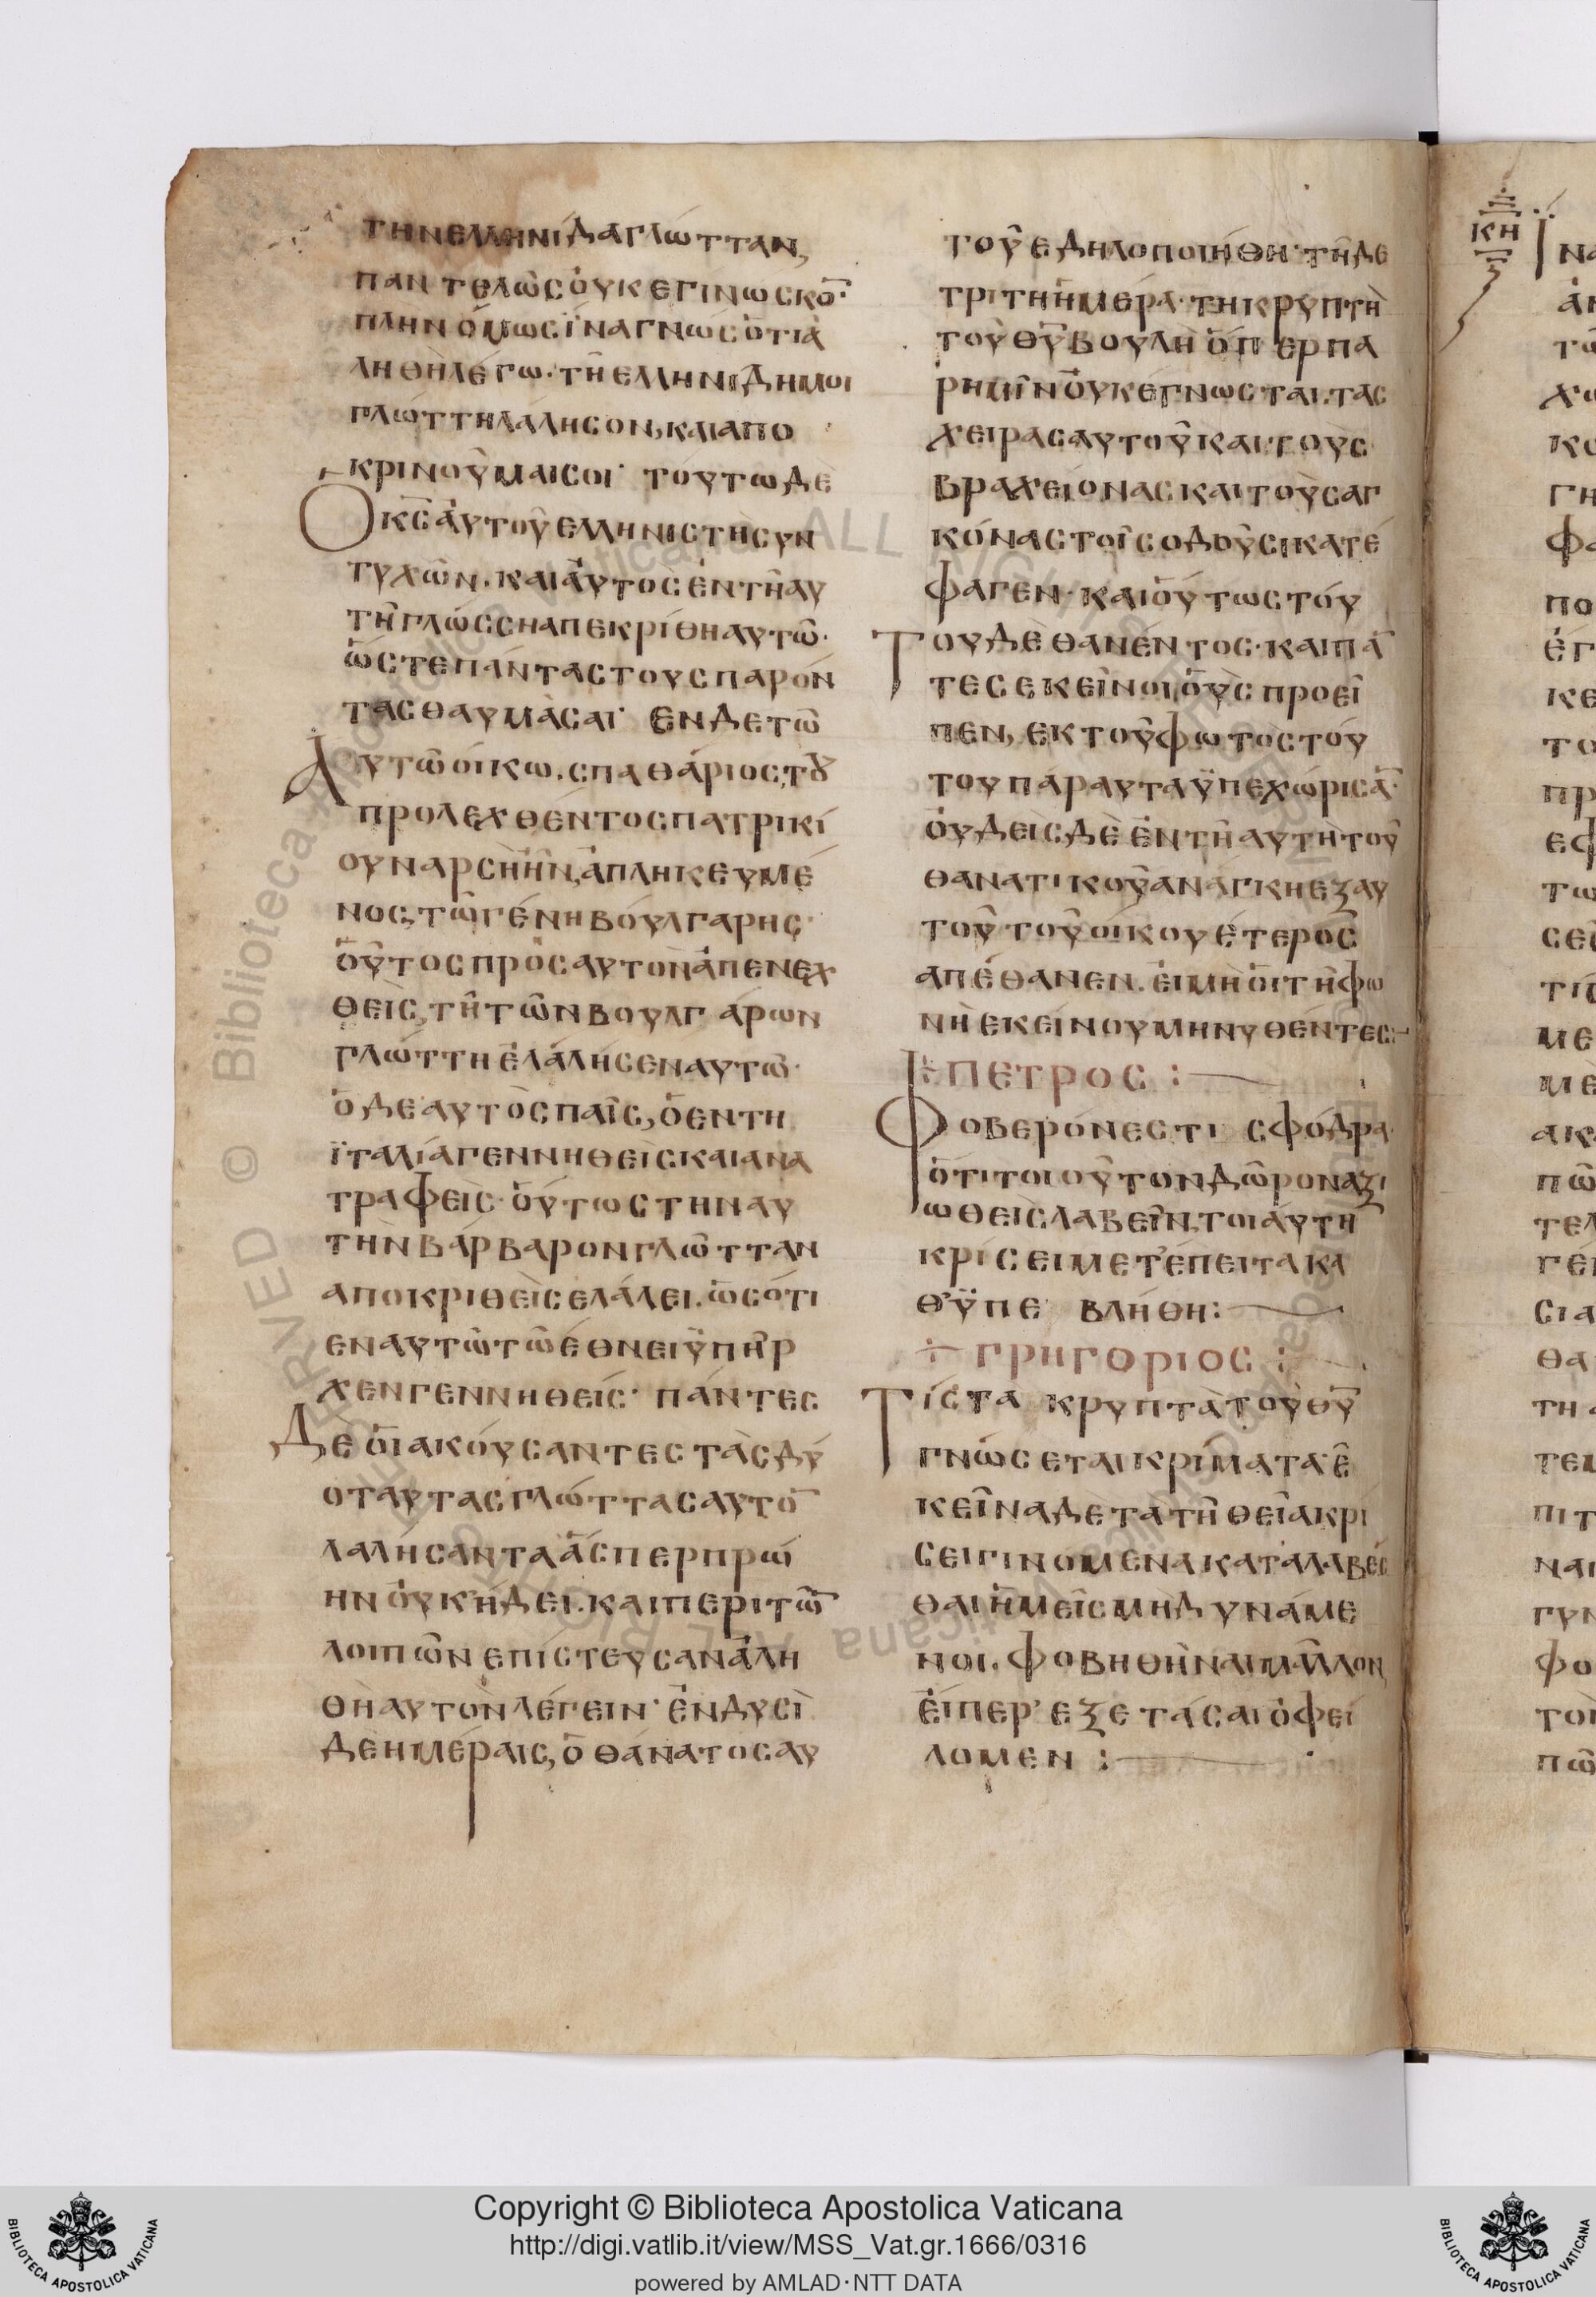 τὴν ελληνίδα γλώτταν,
παντελῶς ὀυκ εγίνωσκο̅·
πλὴν ὅμως ἵνα γνῶς ὅτι ἀ
ληθῆ λέγω· τῆ ελληνίδη μοι
γλώττη λάλησον, και απο
κρινοῦμαι σοι· τούτω δὲ
Ὁ κ̅ς̅ ἀυτοῦ ελληνιστὴ συν
τυχῶν. και ἀυτος ἐν τῆ αυ
τῆ γλώσση απεκρίθη αυτῶ·
ὥστε πάντας τους παρόν
τας θαυμάσαι· Εν δε τῶ
Αυτῶ οίκω. σπαθάριος, τȣ
προλεχθέντος πατρικί
ου ναρσὴ ἦν, ἀπληκευμέ
νος, τῶ γένη βούλγαρης·
ὅυτος προς αυτὸν ἀπενεχ
θεὶς, τῆ τῶν βουλγάρων
γλώττη ἐλάλησεν αυτῶ·
ὁ δε αυτὸς παῖς, ὁ εν τη
ϊταλία γεννηθεὶς και ανα
τραφεὶς· ὅυτως την αυ
τὴν βάρβαρον γλῶτταν
αποκριθεὶς ελάλει. ὡς ὅτι
εν αυτῶ τῶ έθνει ὑπῆρ
χεν γεννηθείς· πάντες
Δὲ ὁι ακούσαντες τὰς δύ
ο ταύτας γλώττας αυτο̅
λαλήσαντα ἅσπερ πρώ
ην ὀυκ ήδει. και περι τῶ̅
λοιπῶν επίστευσαν ἀλη
θὴ αυτὸν λέγειν· ἐν δυσὶ
δὲ ημέραις, ὁ θάνατος αυ
τοῦ εδηλοποιήθη· τῆ δε
τρίτη ἡμέρα· τη κρυπτὴ
τοῦ θ̅υ̅ βουλὴ ὅπερ πα
ρ ημῖν ὀυκ έγνωσται. τας
χειρας αυτοῦ και τους
βραχείονας και τοὺς αγ
κόνας τοῖς οδουσι κατέ
φαγεν· και ὅυτως τού
Του δὲ θανέντος· και πά̅
τες εκεῖνοι, ὅυς προεῖ
πεν, εκ τοῦ φωτὸς τού
του πάραυτα ὑπεχώρισα̅·
ὀυδεις δὲ ἐν τῆ αυτὴ τοῦ
θανατικοῦ ανάγκη εξ αυ
τοῦ τοῦ οίκου έτερος
απέθανεν. ἐι μὴ ὁι τῆ φω
νὴ εκείνου μηνυθέντες:
ΠΕΤΡΟΣ :
Φοβερόν εστι σφόδρα·
ὅτι τοιοῦτον δῶρον αξι
ωθεὶς λαβεῖν, τοιάυτη
κρίσει μετ’ έπειτα κα
θ’ ὑπε βλήθη:
ΓΡΗΓΟΡΙΟΣ :
Τίς τα κρυπτὰ τοῦ θ̅υ̅
γνώσεται κρίματα· ἐ
κεῖνα δὲ τα τῆ θεῖα κρί
σει γινόμενα καταλαβέσ
θαι ἡμεῖς μὴ δυνάμε
νοι. φοβηθῆναι μᾶλλον,
ἐίπερ’ εξετάσαι ὀφεί
λομεν :
ΚΗ
Copyright © Biblioteca Apostolica Vaticana
http://digi.vatlib.it/view/MSS_Vat.gr.1666/0316
powered by AMLAD·NTT DATA
BIBLIOTECA APOSTOLICA VATICANA
BIBLIOTECA APOSTOLICA VATICANA